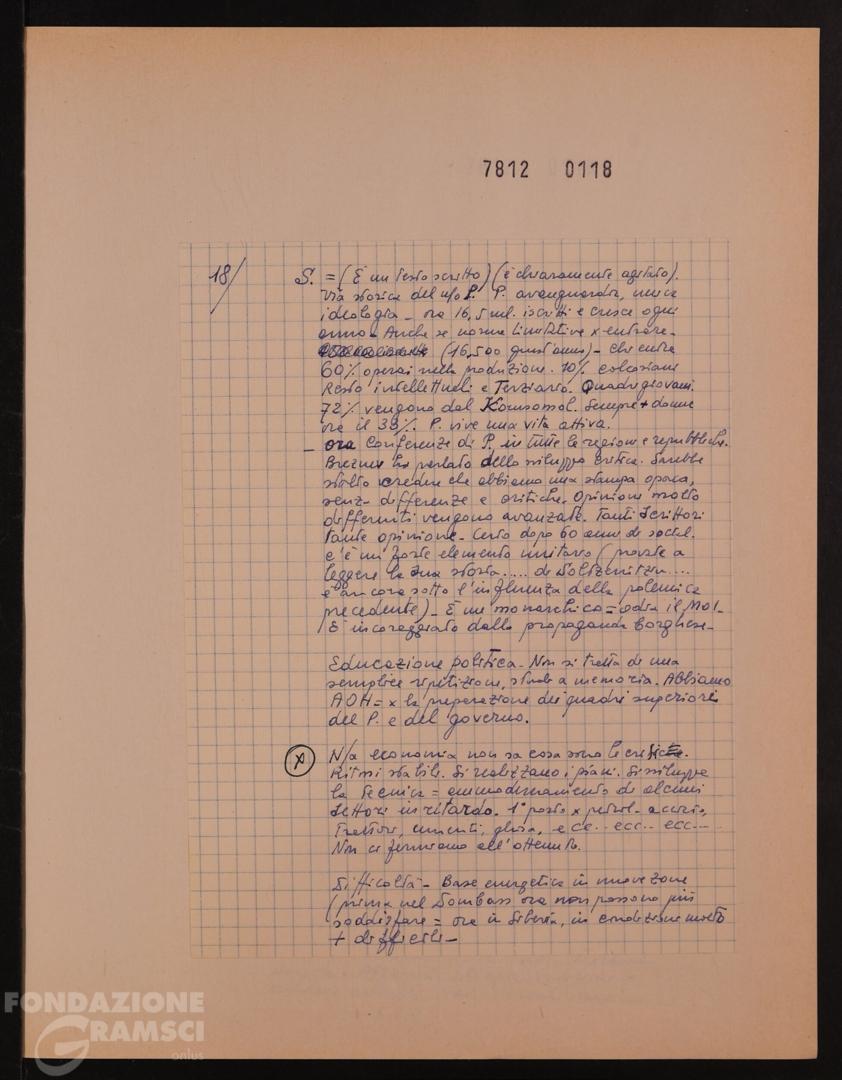 7812 0118
18/
S. = (È un testo scritto) (è chiaramente agitato).
Via storica del n/o P. P. avanguardia, unica
ideologia - ora 16,5 mil. iscritti e cresce ogni
anno - Anche se norme limitative x entrare -
(16.500 quest'anno) - chi entra
60% operai nella produzione. 10% colcosiani
Resto intellettuali e Terziario. Quadri giovani.
72% vengono dal Komsomol. Sempre + donne
ora il 33%. P. vive una vita attiva.
- ora Conferenze di P. in tutte le regioni e repubbliche.
Breznev ha parlato dello sviluppo critica. Sarebbe
stolto credere che abbiamo una stampa opaca,
senza differenze e critiche. Opinioni molto
differenti vengono avanzate. Tanti scrittori
tante opinione. Certo dopo 60 anni di social.
c'è un forte elemento unitario (provate a
leggere la sua storia .... di Solizenitzin ....
è ancora sotto l'influenza della polemica
precedente) - È un monarchico = odia il
È incoraggiato dalla propaganda borghese -
Educazione politica - Non si tratta di una
semplice ripetizione, studi a memoria. Abbiamo
AOH = x la preparazione dei quadri superiori
del P. e del governo.
x N/a economia non sa cosa sono le crisi.
Ritmi stabili. Si realizzano i piani. Si sviluppa
la tecnica = ammodernamento di alcuni
settori in ritardo. 1° posto x petrol. acciaio,
Trattori, cementi, ghisa, ecc.. ecc.. ecc...
Non ci fermiamo all'ottenuto.
Difficoltà - Base energetica in nuove zone
(prima nel Dombass ora non possono più
soddisfare = ora in Siberia, in condizioni molto
+ difficili -
FONDAZIONE
GRAMSCI
onlus